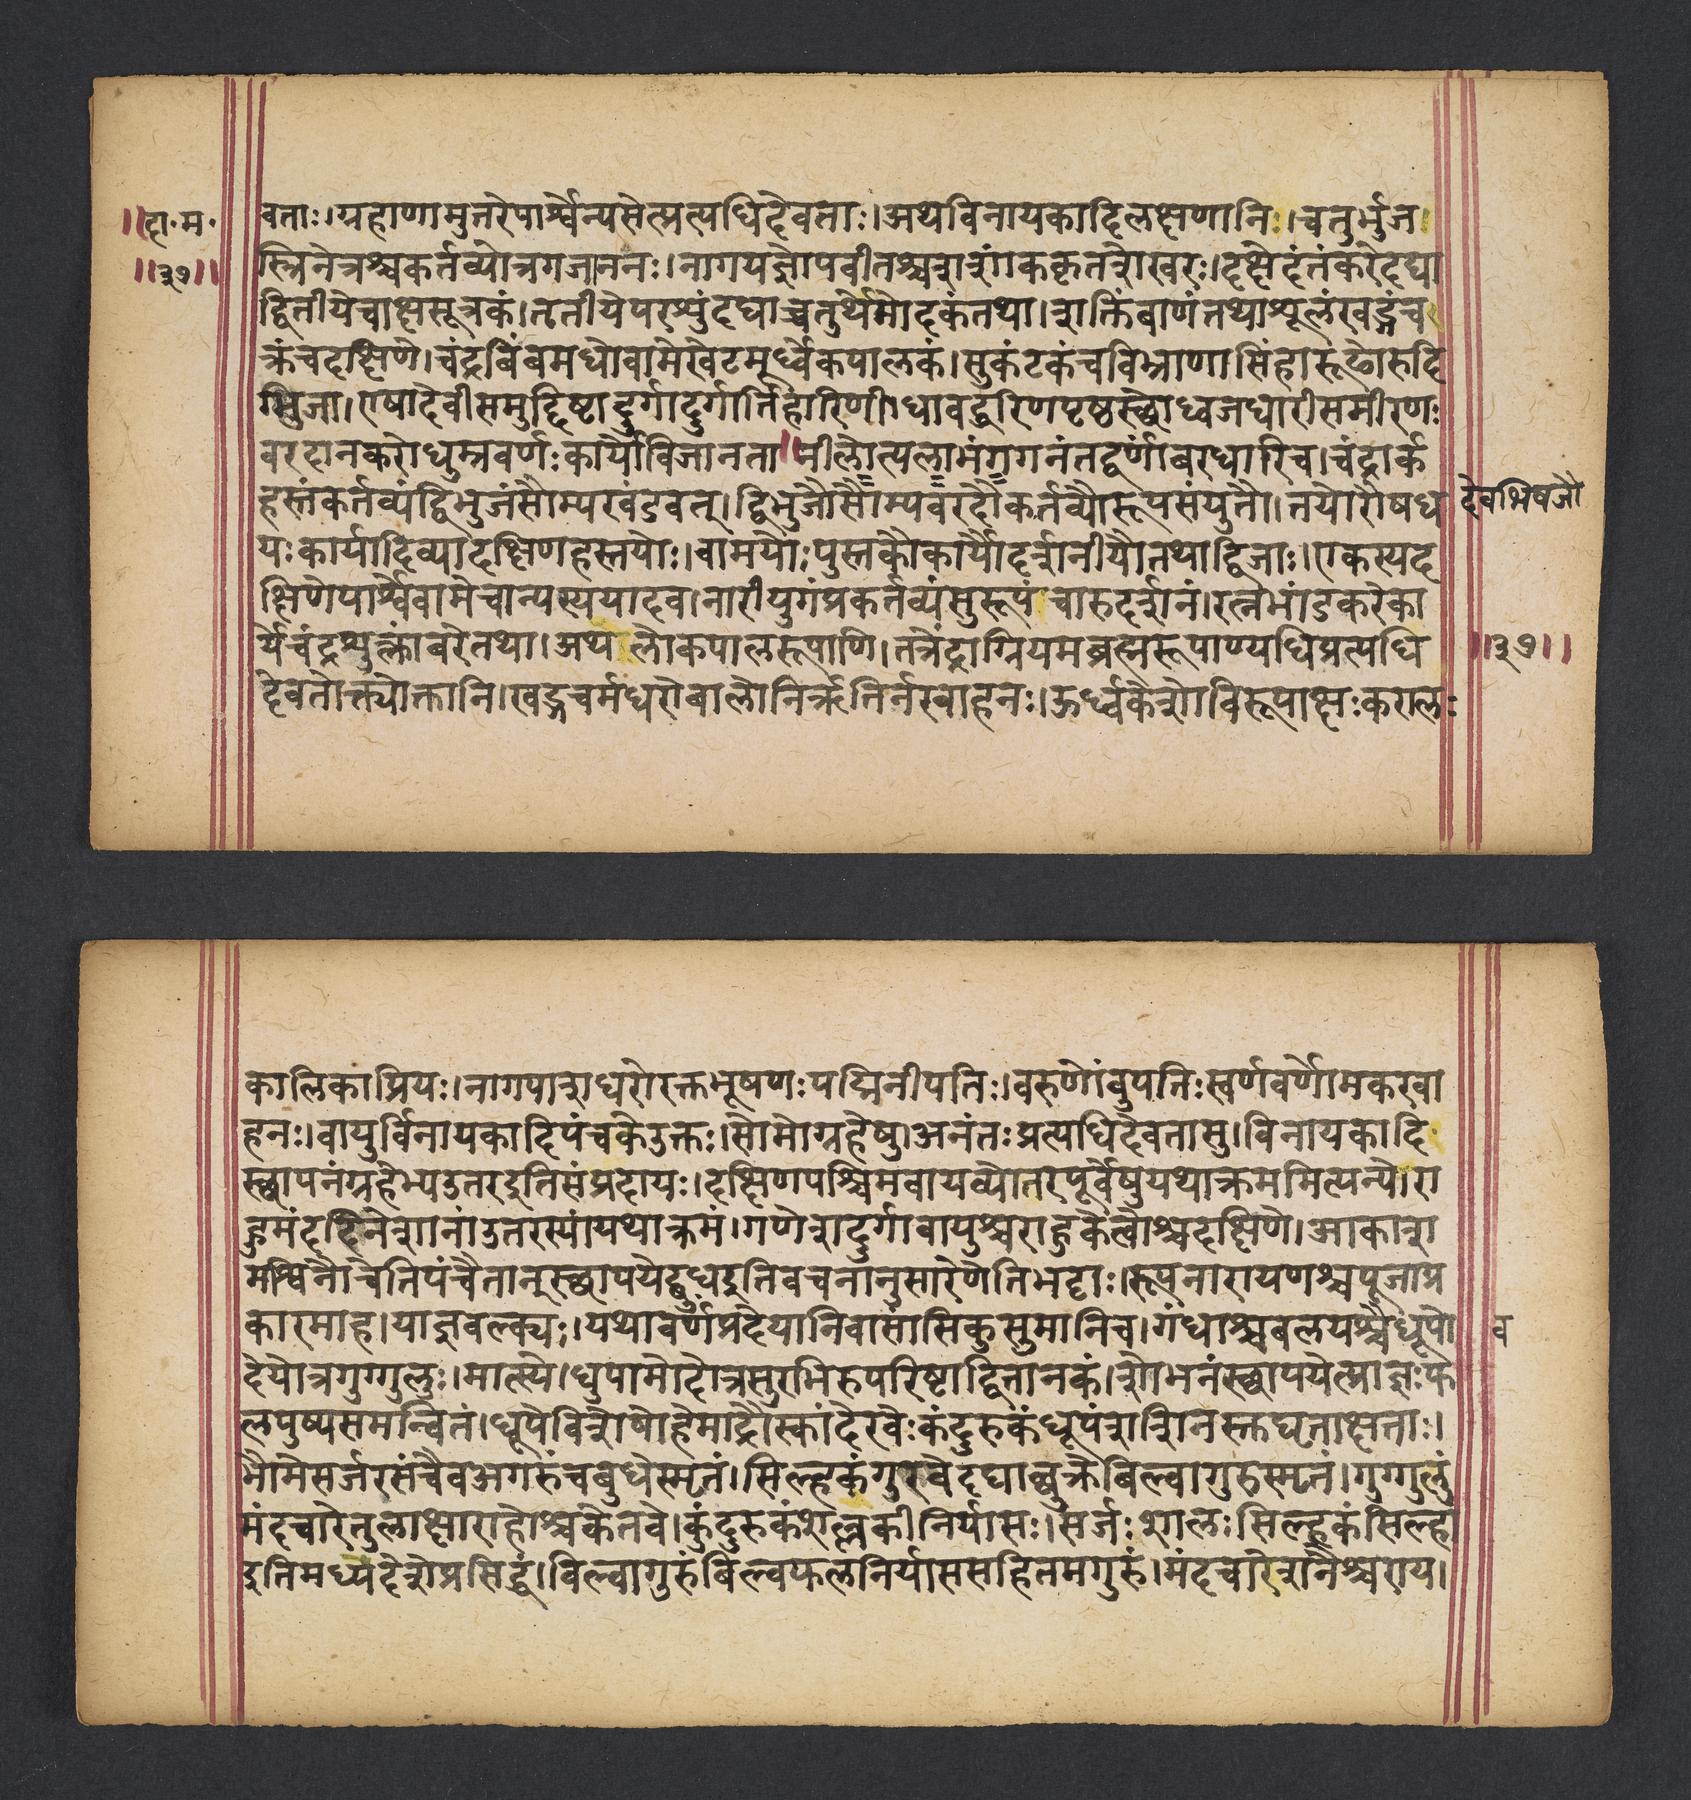 ॥दा॰म॰
॥३७॥
वताः।ग्रहाणामुत्तरेपार्श्वेन्यसेत्प्रत्यधिदेवताः।अथविनायकादिलक्षणानि।चतुर्भुज
स्त्रिनेत्रश्चकर्तव्योत्रगजाननः।नागयज्ञोपवीतश्चशशांककृतशेखरः।दक्षेदंतंकरेदद्या
द्वितीयेचाक्षसूत्रकं।तृतीयेपरशुंदद्याच्चतुर्थेमोदकंतथा।शक्तिंबाणंतथाशूलंखड्गंच
क्रंचदक्षिणे।चंद्रबिंबमधोवामेखेटमूर्ध्वेकपालकं।सुकंटकंचबिभ्राणासिंहारूढोरुदि
ग्भुजा।एषादेवीसमुद्दिष्टादुर्गादुर्गार्तिहारिणी।धावद्धरिणपृष्ठस्छोध्वजधारीसमीरणः
वरदानकरोधुम्रवर्णःकार्योविजानता॥नीलोत्पलाभंगगनंतद्वर्णांबरधारिच।चंद्रार्क
हस्तंकर्तव्यंद्विभुजंसौम्यखंडवत्।द्विभुजौसौम्यवरदौकर्तव्यौरूपसंयुतौ।तयोरोषध
देवभिषजौ
यःकार्यादिव्यादक्षिणहस्तयोः।वामयोःपुस्तकौकार्यौदर्शनीयौतथाद्विजाः।एकस्यद
क्षिणेपार्श्वेवामेचान्यस्ययादव।नारीयुगंप्रकर्तव्यंसुरूपंचारुदर्शनं।रत्नभांडकरेका
र्येचंद्रशुक्लांबरेतथा।अथलोकपालरूपाणि।तत्रेंद्राग्नियमब्रह्मरूपाण्यधिप्रत्यधि
॥३७॥
देवतोक्त्योक्तानि।खड्गचर्मधरोबालोनिर्ऋतिर्नरवाहनः।ऊर्ध्वकेशोविरूपाक्षःकरालः
कालिकाप्रियः।नागपाशधरोरक्तभूषणःपद्मिनीपतिः।वरुणोंबुपतिःस्वर्णवर्णोमकरवा
हनः।वायुर्विनायकादिपंचकेउक्तः।सोमोग्रहेषु।अनंतःप्रत्यधिदेवतासु।विनायकादि
स्छापनंग्रहेभ्यउतरइतिसंप्रदायः।दक्षिणपश्चिमवायव्योतरपूर्वेषुयथाक्रममित्यन्ये।रा
हुमंददिनेशानांउतरस्यांयथाक्रमं।गणेशदुर्गावायुश्चराहुकेत्वोश्चदक्षिणे।आकाश
मश्विनौचेतिपंचैतान्स्छापयेद्बुधइतिवचनानुसारेणेतिभट्टाः।रूपनारायणश्चपूजाप्र
कारमाह।याज्ञवल्क्यः।यथावर्णंप्रदेयानिवासांसिकुसुमानिच।गंधाश्चबलयश्चैधूपो
व
देयोत्रगुग्गुलुः।मात्स्ये।धुपामोदोत्रसुरभिरुपरिष्टाद्वितानकं।शोभनंस्छापयेत्प्राज्ञःफ
लपुष्पसमन्वितं।धूपेविशेषोहेमाद्रौस्कांदेरवेःकंदुरुकंधूपंशशिनस्तघृताक्षताः।
भौमेसर्जरसंचैवअगरुंचबुधेस्मृतं।सिल्हकंगुरवेदद्याच्छुक्रेबिल्वागुरुस्मृतं।गुग्गुलुं
मंदचारेतुलाक्षाराहोश्चकेतवे।कुंदुरुकंशल्लकीनिर्यासः।सर्जःशालःसिल्हकंसिल्हा
इतिमध्यदेशेप्रसिद्धं।बिल्वागुरुंबिल्वफलनिर्याससहितमगुरुं।मंदचारेशनैश्चराय।